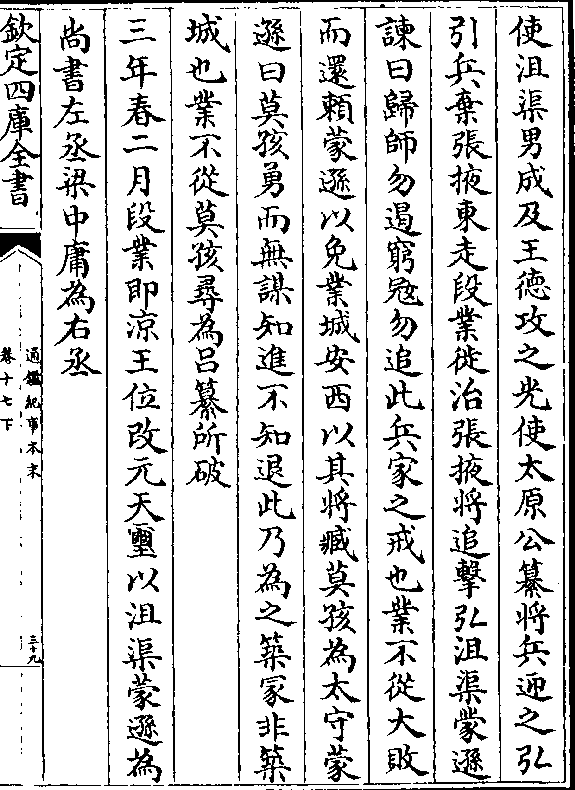 使沮渠男成及王德攻之光使太原公纂將兵迎之弘
引兵棄張掖東走段業徙治張掖將追擊弘沮渠蒙遜
諫曰歸師勿遏窮冦勿追此兵家之戒也業不從大敗
而還賴蒙遜以免業城安西以其將臧莫孩為太守蒙
遜曰莫孩勇而無謀知進不知退此乃為之築冢非築
城也業不從莫孩尋為吕纂所破
三年春二月段業即凉王位改元天璽以沮渠蒙遜為
尚書左丞梁中庸為右丞
欽定四庫全書
通鑑紀事本末
卷十七下
三十九